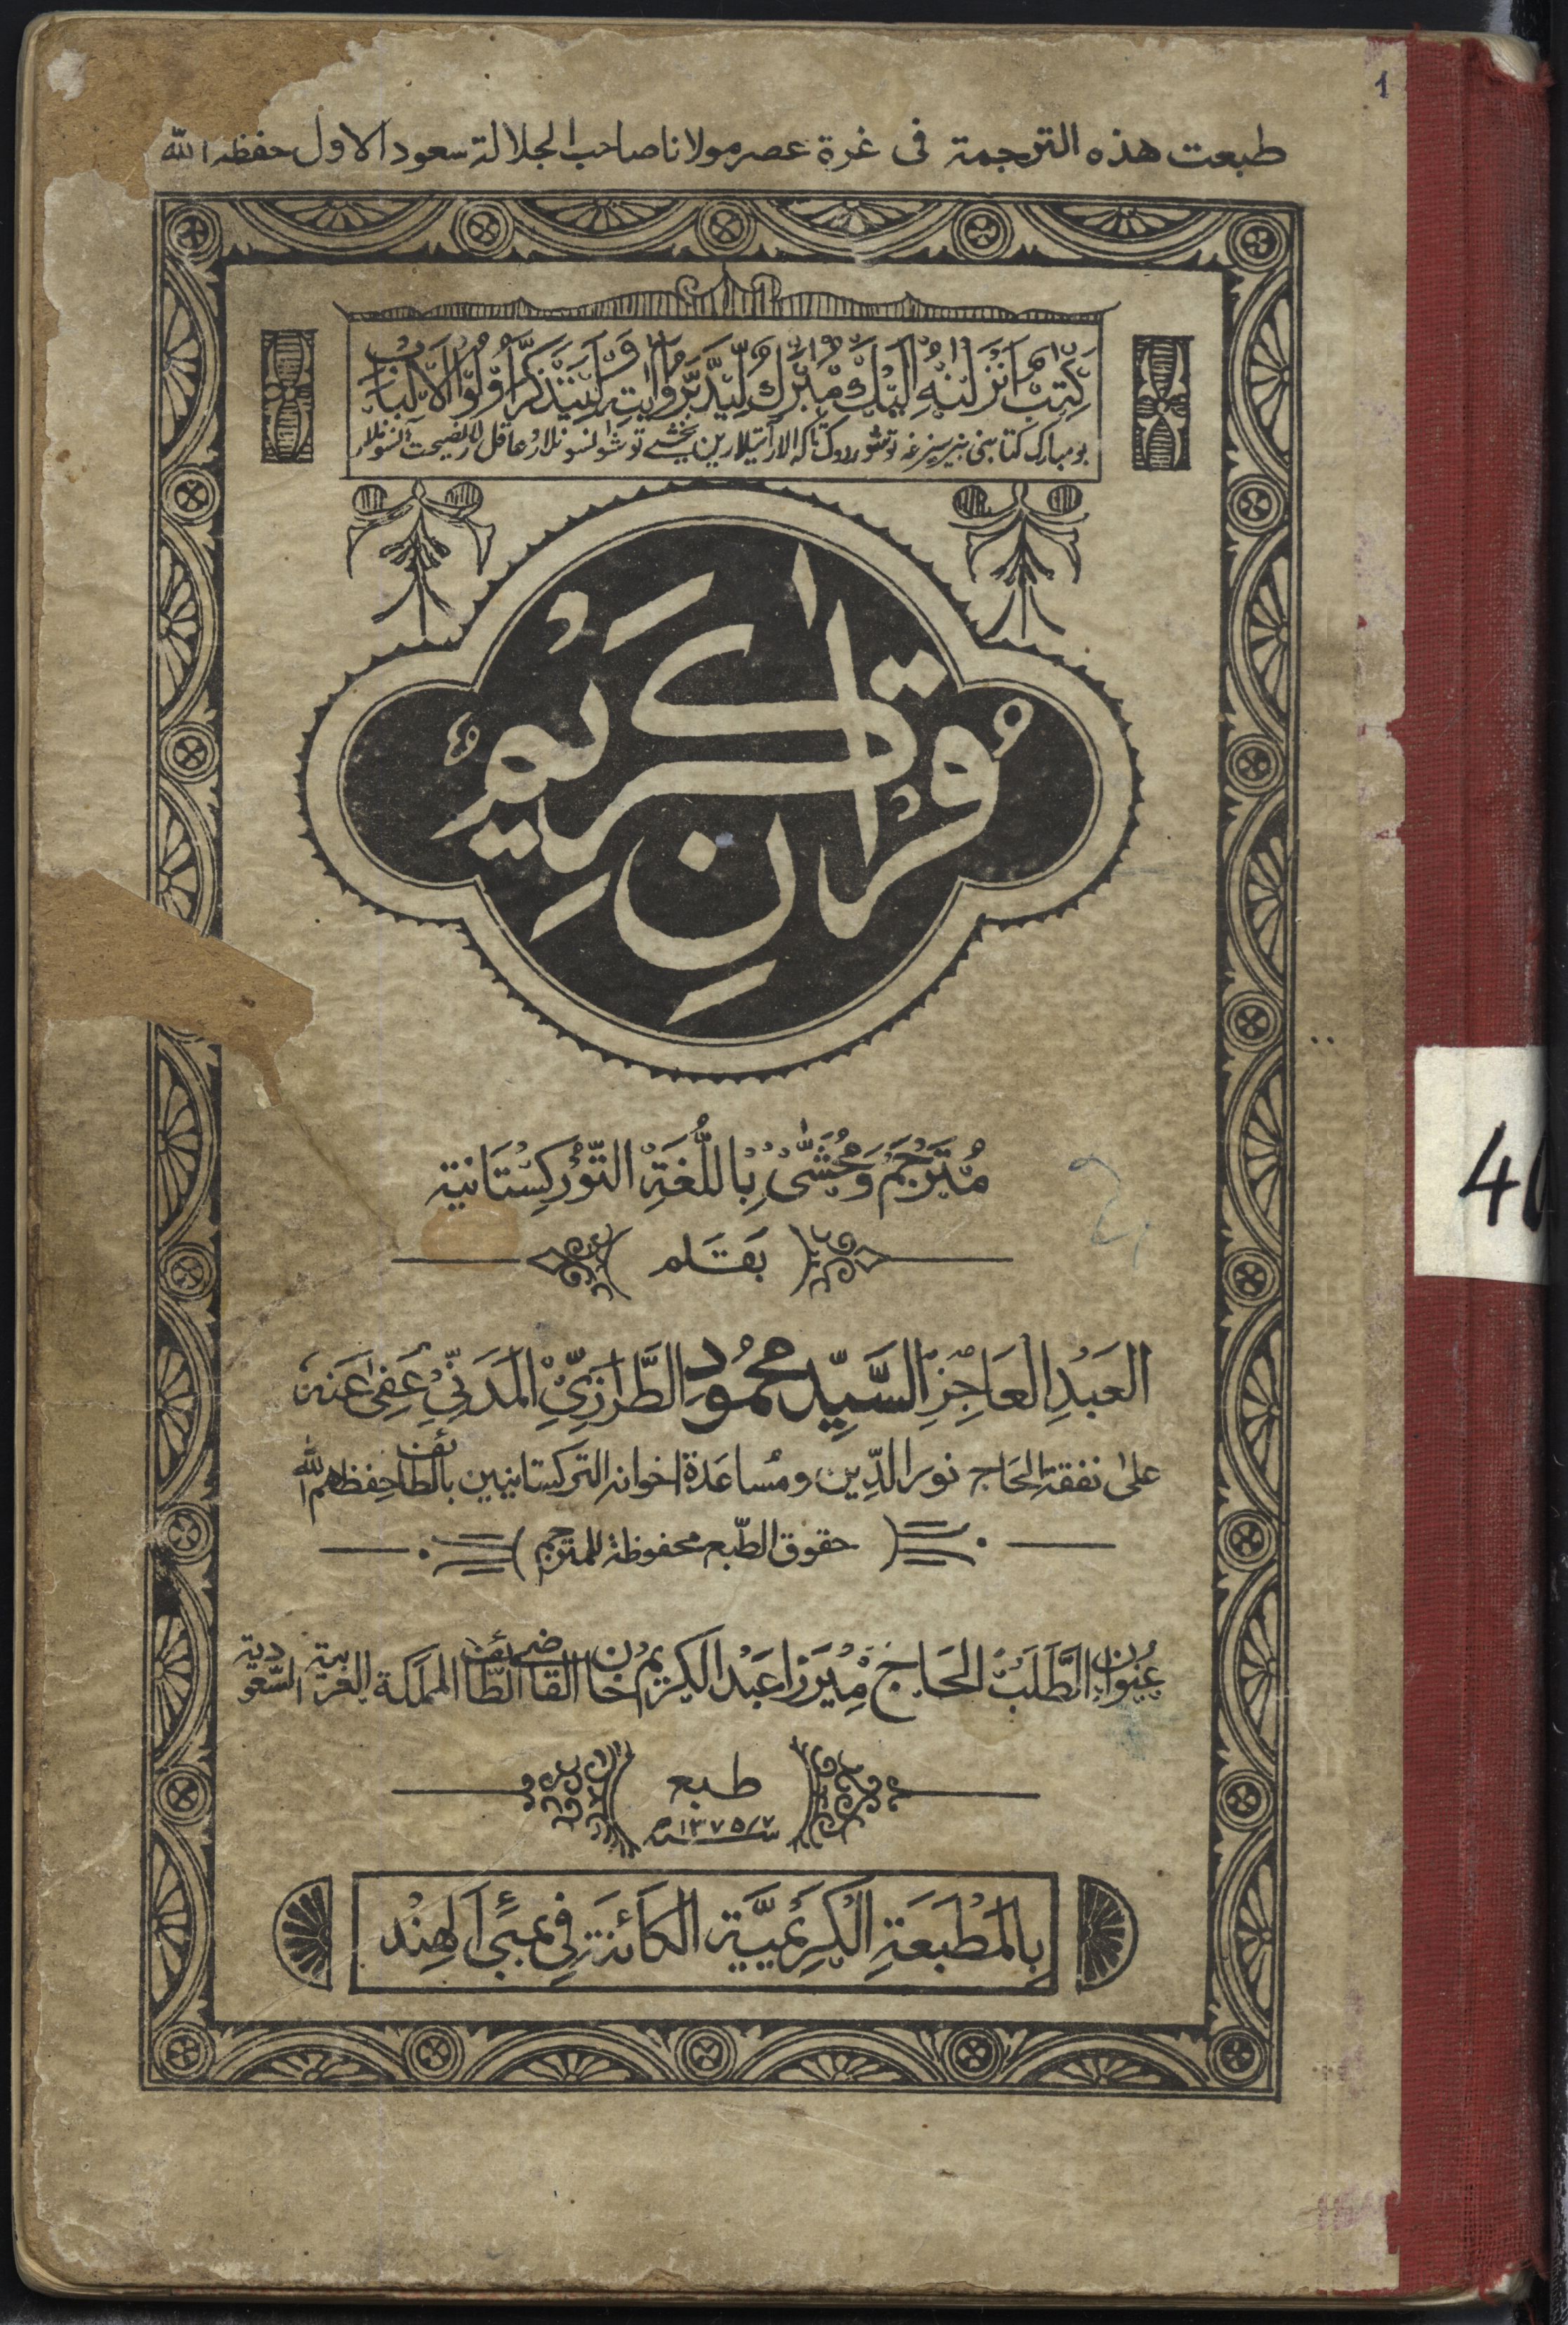 1
طبعت هذه الترجمة فى غرة عصر مولانا صاحب الجلالة سعود الاول حفظه الله
كِتٰبٌ اَنْزَلْنٰهُ اِلَيْكَ مُبٰرَكٌ لِّيَدَّبَّرُوْا اٰيٰتِهٖ وَلِيَتَذَكَّرَ اُولُوا الْاَلْبَابِ
بو مبارك كتابنى بيز سيزغه توشوردوك تاكه الار آيتلارين يخشى توشونسونلار عاقللار نصيحت آلسونلار
قُرْاٰنِ كَرِيْمُ
مُتَرْجَمْ وَمُحَشّٰى بِاللُّغَةِ التُّوْرْكِسْتَانِية
بَقَلم
العَبْدِ العَاجِزِ السَّيِّد محمُود الطَّرَازِيِّ المَدَنِيِّ عَفِىَ عَنه
على نفقة الحَاج نور الدِّين ومُساعَدة اخوانه التركستانيين بالطائف حفظهم الله
حقوق الطّبع محفوظة للمترجم
عُنْوَانُ الطَّلَبْ الحَاج مِيْرزا عَبْد الكريم خان القاضى الطائف المملكة العَربية السَّعودية
طبع
سنه ١٣٧٥/٧
بِالمَطْبَعَةِ الْكَرِيْمِيَّة الكَائنَة فِى بمبَئ الهِنْد
40